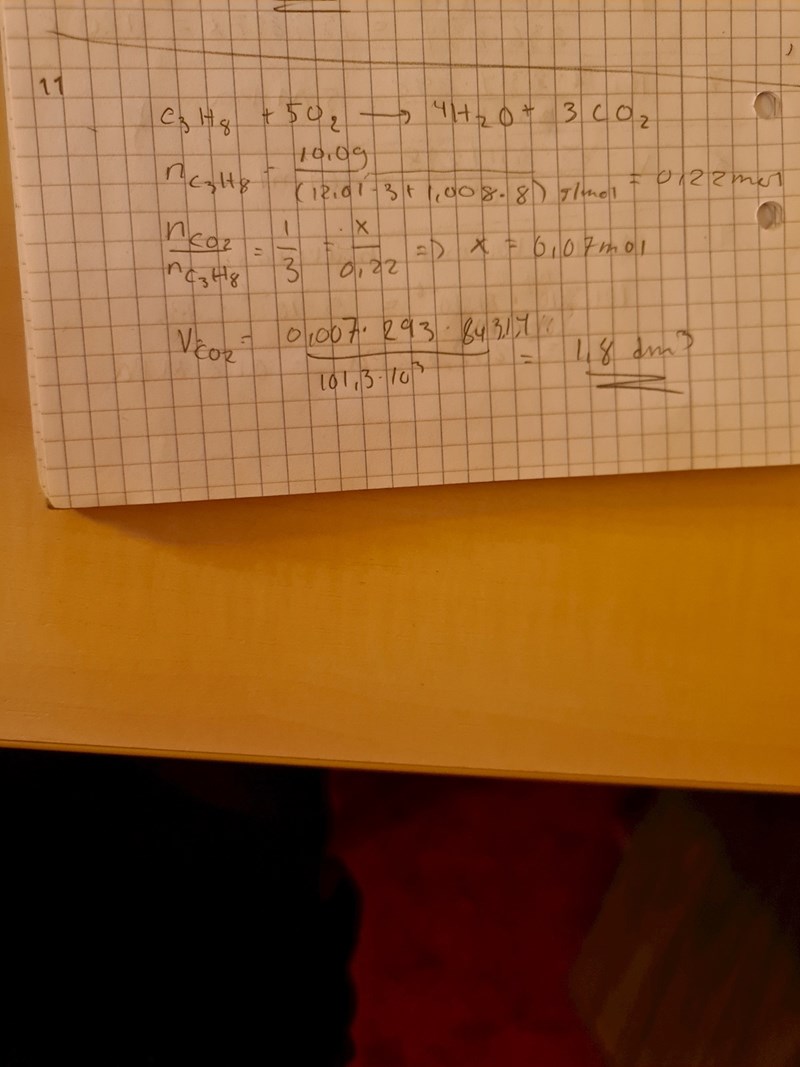 11
C₃H₈ + 5O₂ → 4H₂O + 3CO₂
n_C₃H₈ = 10,0g / (12,01·3 + 1,008·8) g/mol = 0,22 mol
n_CO₂ / n_C₃H₈ = 1/3 = x / 0,22 => x = 0,07 mol
V_CO₂ = 0,007 · 293 · / 101,3·10³ = 1,8 dm³